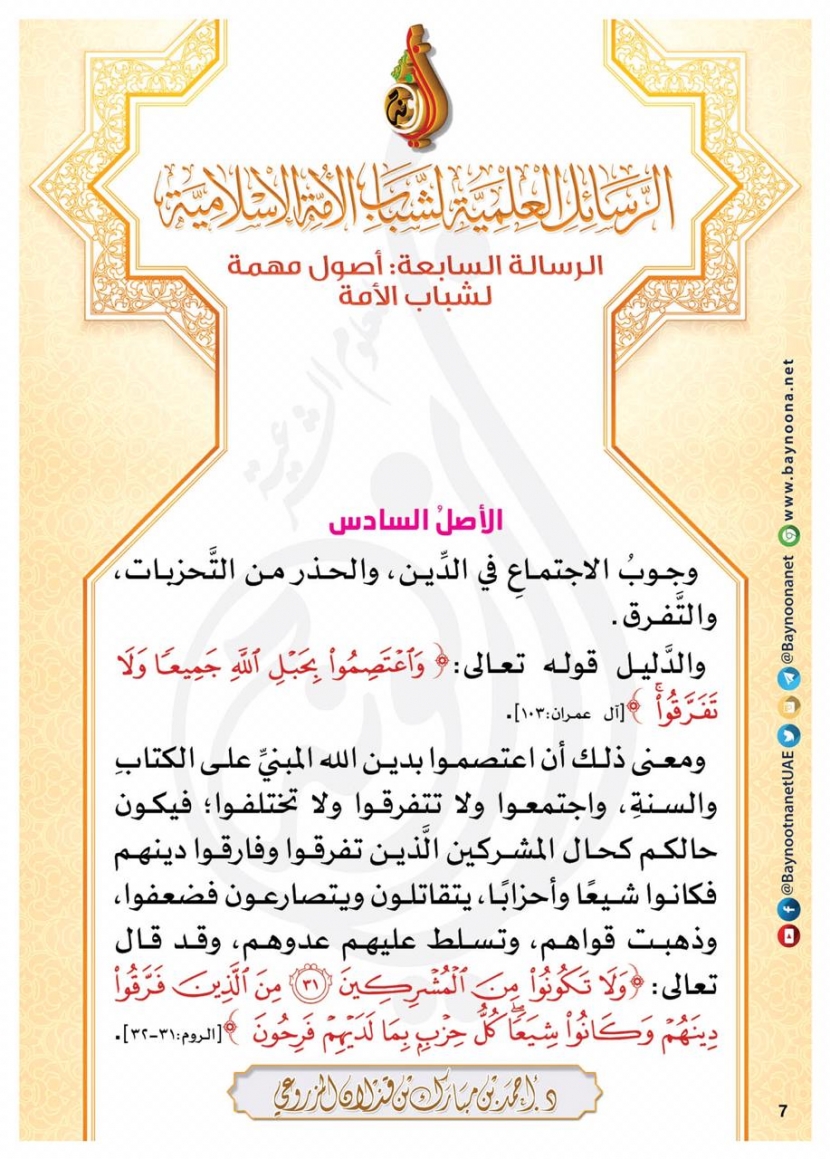 الرسائل العلمية لشباب الأمة الإسلامية
الرسالة السابعة: أصول مهمة
لشباب الأمة
الأصلُ السادس
وجوبُ الاجتماعِ في الدِّين، والحذر من التَّحزبات،
والتَّفرق.
والدَّليل قوله تعالى: ﴿ وَٱعْتَصِمُوا۟ بِحَبْلِ ٱللَّهِ جَمِيعًا وَلَا
تَفَرَّقُوا۟ۚ ﴾ [آل عمران:١٠٣].
ومعنى ذلك أن اعتصموا بدين الله المبنيِّ على الكتابِ
والسنةِ، واجتمعوا ولا تتفرقوا ولا تختلفوا؛ فيكون
حالكم كحال المشركين الَّذين تفرقوا وفارقوا دينهم
فكانوا شيعًا وأحزابًا، يتقاتلون ويتصارعون فضعفوا،
وذهبت قواهم، وتسلط عليهم عدوهم، وقد قال
تعالى: ﴿وَلَا تَكُونُوا۟ مِنَ ٱلْمُشْرِكِينَ ٣١ مِنَ ٱلَّذِينَ فَرَّقُوا۟
دِينَهُمْ وَكَانُوا۟ شِيَعًاۖ كُلُّ حِزْبٍۭ بِمَا لَدَيْهِمْ فَرِحُونَ ﴾ [الروم:٣١-٣٢].
د. أحمد بن مبارك بن قذلان المزروعي
7
www.baynoona.net
@Baynoonanet
@BaynootnanetUAE
العلوم الشرعية